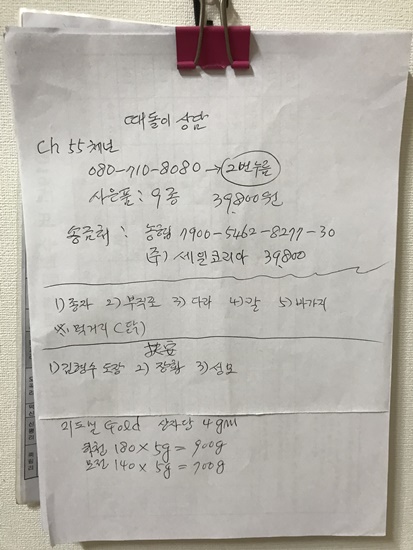 때돌이 상담
Ch 55채널
080-710-8080→2번누름
사은품: 9종 39,800원
송금처: 농협 7900-5462-8277-30
(주) 세일코리아 39,800
1) 종자 2) 부직포 3) 다라 4) 칼 5) 바가지
※ 먹거리 (닭)
1) 김형수 도장 2) 장황 3) 성묘
리도밀 Gold 산자단 4gm
180×5g=900g
140×5g=700g